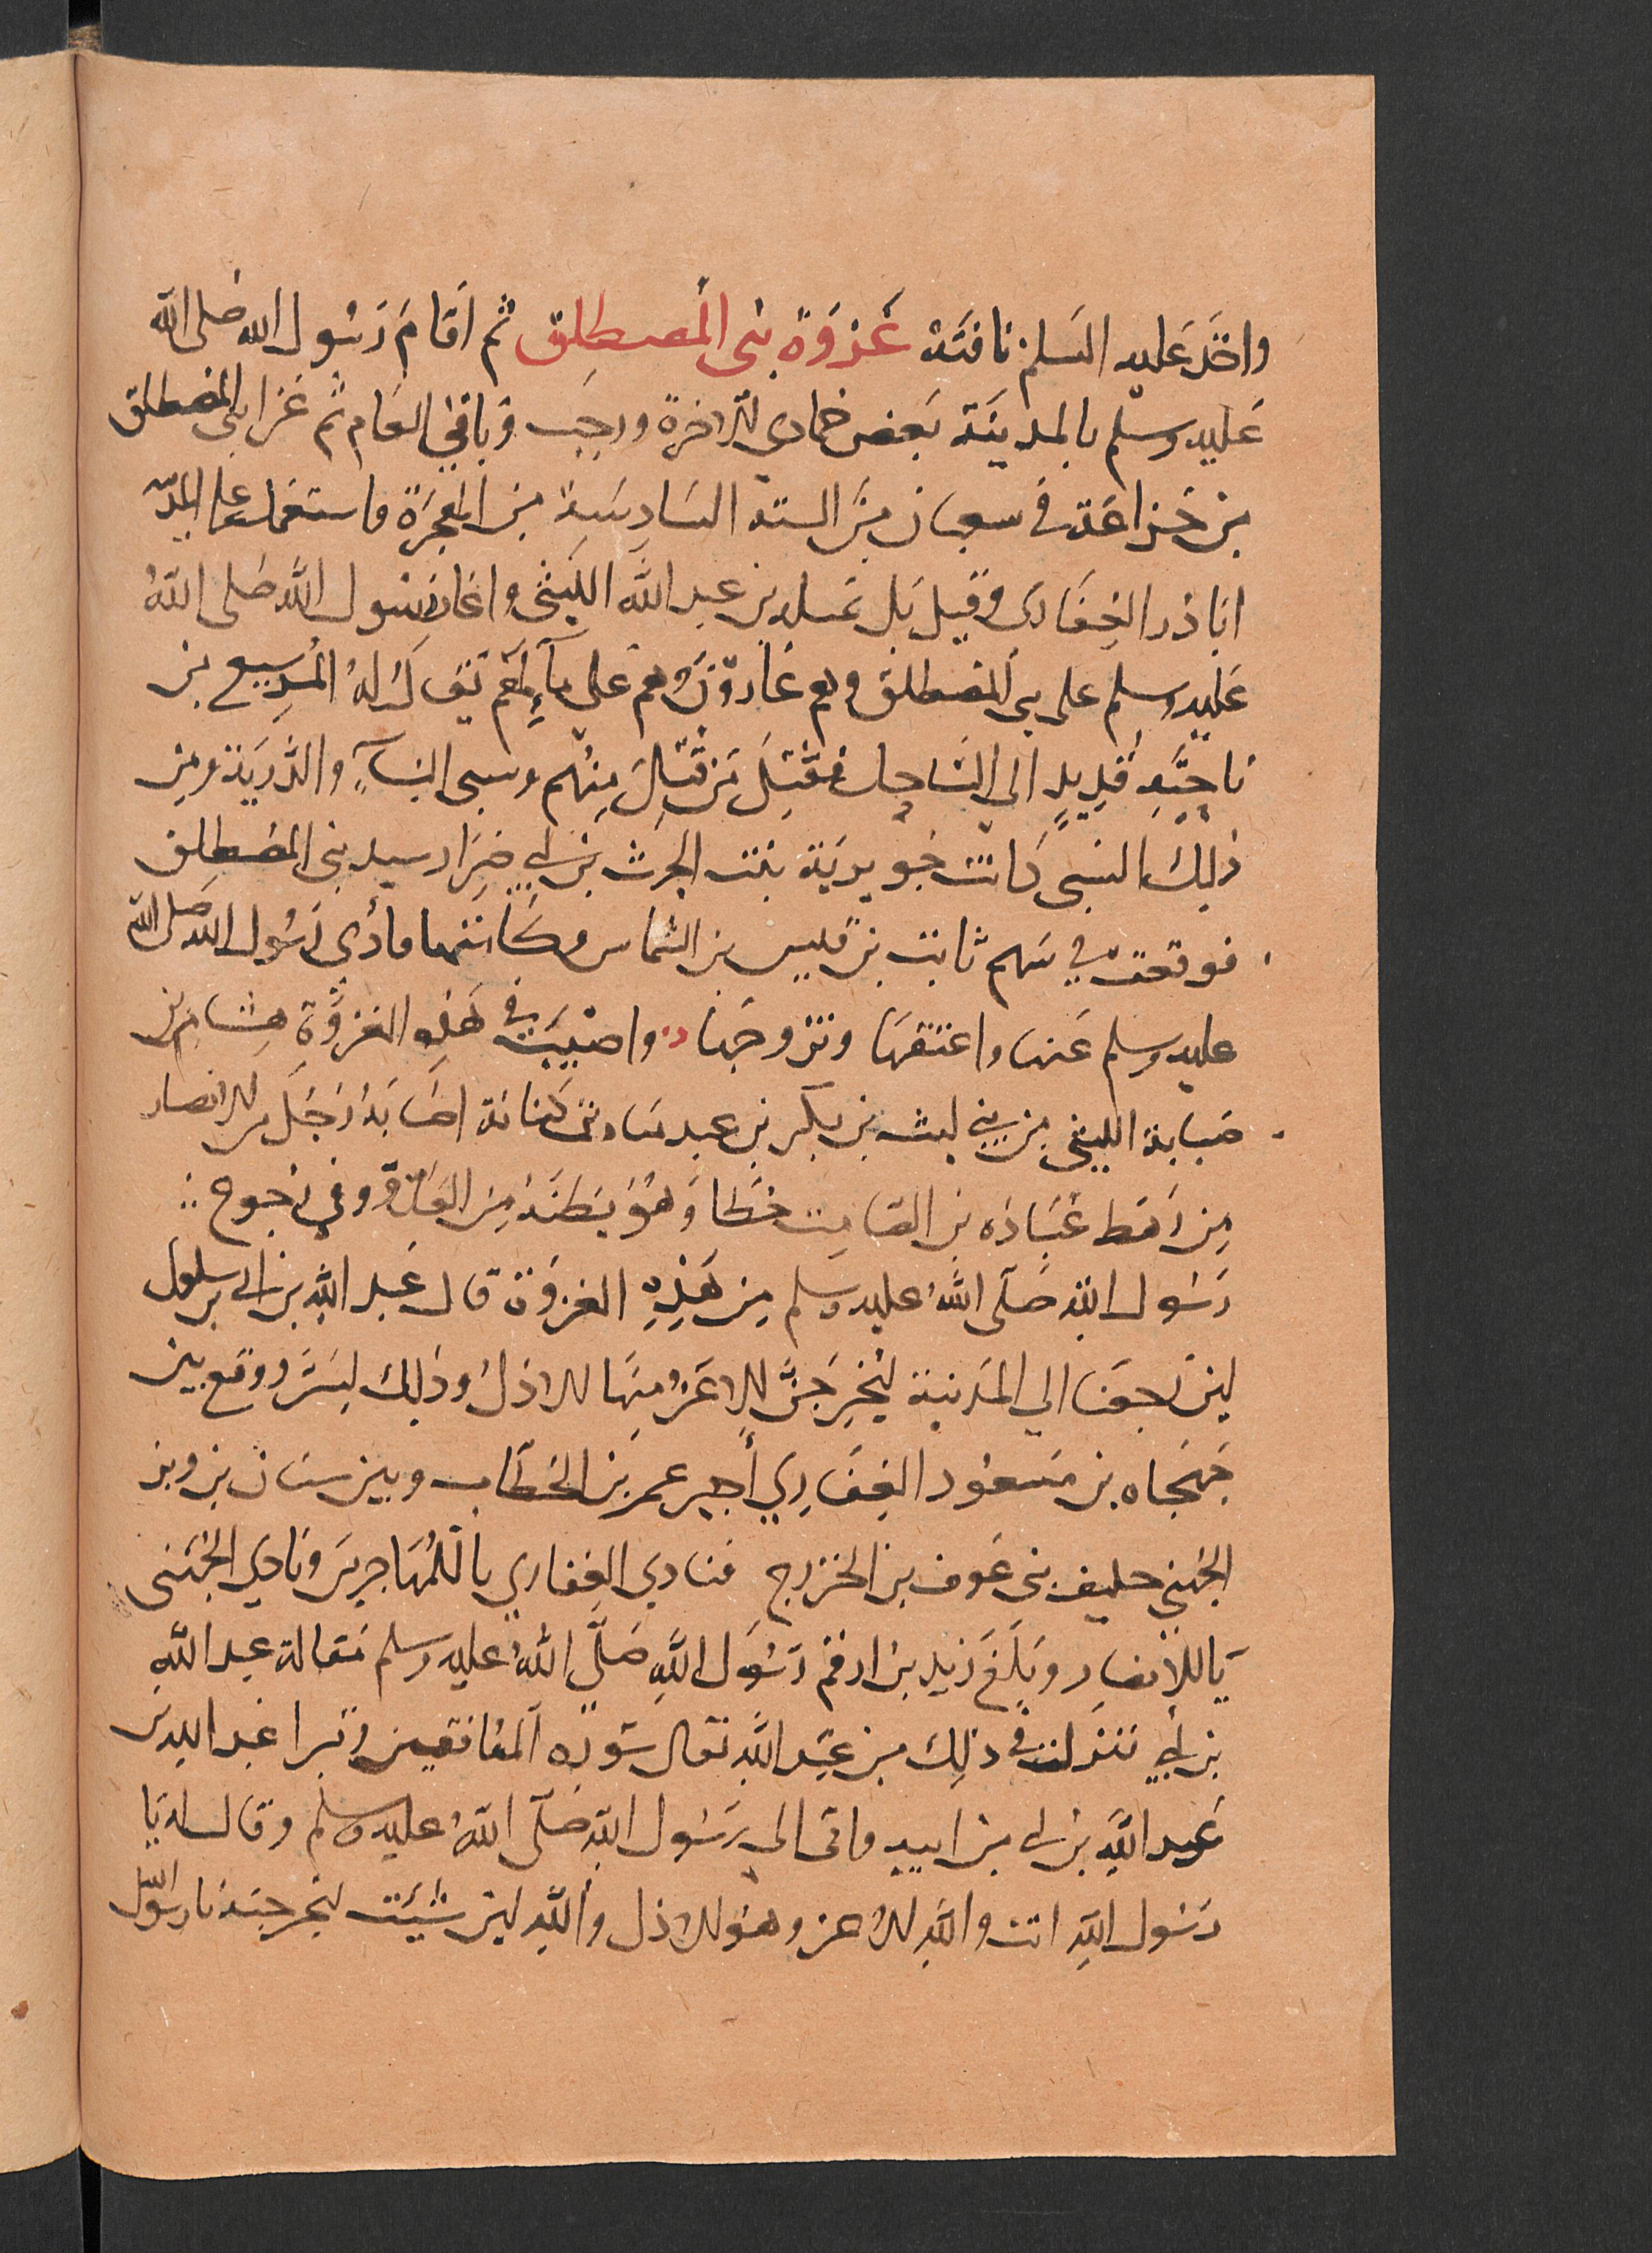 واخذ عليه السلم ناقته غزوة بني المصطلق ثم اقام رسول الله صلى الله
عليه وسلم بالمدينة بعض جمادى الاخرة ورجب وباقي العام ثم غزا بني المصطلق
من خزاعة في سعبان من السنة السادسة من الهجرة واستعمل على المد
ابا ذر الغفاري وقيل بل نميلة بن عبد الله الليثي واغار رسول الله صلى الله
عليه وسلم على بني المصطلق وهم غارون وهم على مآء لهم يقال له المريسيع من
ناحية قديد الى الساحل فقتل من قتل منهم وسبى النسآء والذرية ومن
ذلك السبي كانت جويرية بنت الحرث بن ابي ضرار سيد بني المصطلق
فوقعت في سهم ثابت بن قيس بن الشماس وكاتبها فادى رسول الله صلى الله
عليه وسلم عنها واعتقها وتزوجها واصيب في هذه الغزوة هشام بن
ضبابة الليثي من بني ليث بن بكر بن عبد مناة بن كنانة اصابه رجل من الانصار
من رهط عبادة بن الصامت خطا وهو يظنه من العدو وفي رجوع
رسول الله صلى الله عليه وسلم من هذه الغزوة قال عبد الله بن ابي بن سلول
لين رجعنا الي المدينة ليخرجن الاعز منها الاذل وذلك لشر ووقع بين
جهجاه بن مسعود الغفاري أجير عمر بن الخطاب وبين سنان بن وبر
الجهني حليف بني عوف بن الخزرج فنادي الغفاري يا للمهاجرين ونادي الجهني
يا للأنصار وبلغ زيد بن ارقم رسول الله صلى الله عليه وسلم مقالة عبد الله
بن أبي فنزلت في ذلك من عند الله تعالى سورة المنافقين وتبرا عبد الله بن
عبد الله بن ابي من ابيه واتى الي رسول الله صلى الله عليه وسلم وقال له يا
رسول الله انت والله الاعز وهو الاذل والله لين شيت لنخرجنه يا رسول الله